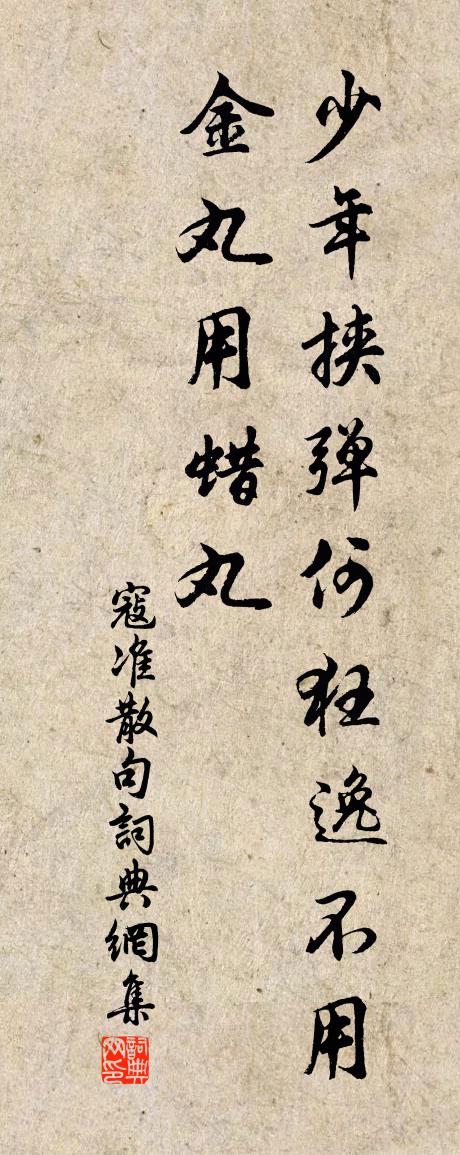 少年挟弹何狂逸不用
金丸用蜡丸
寇准散句詞典網集
詞典網印